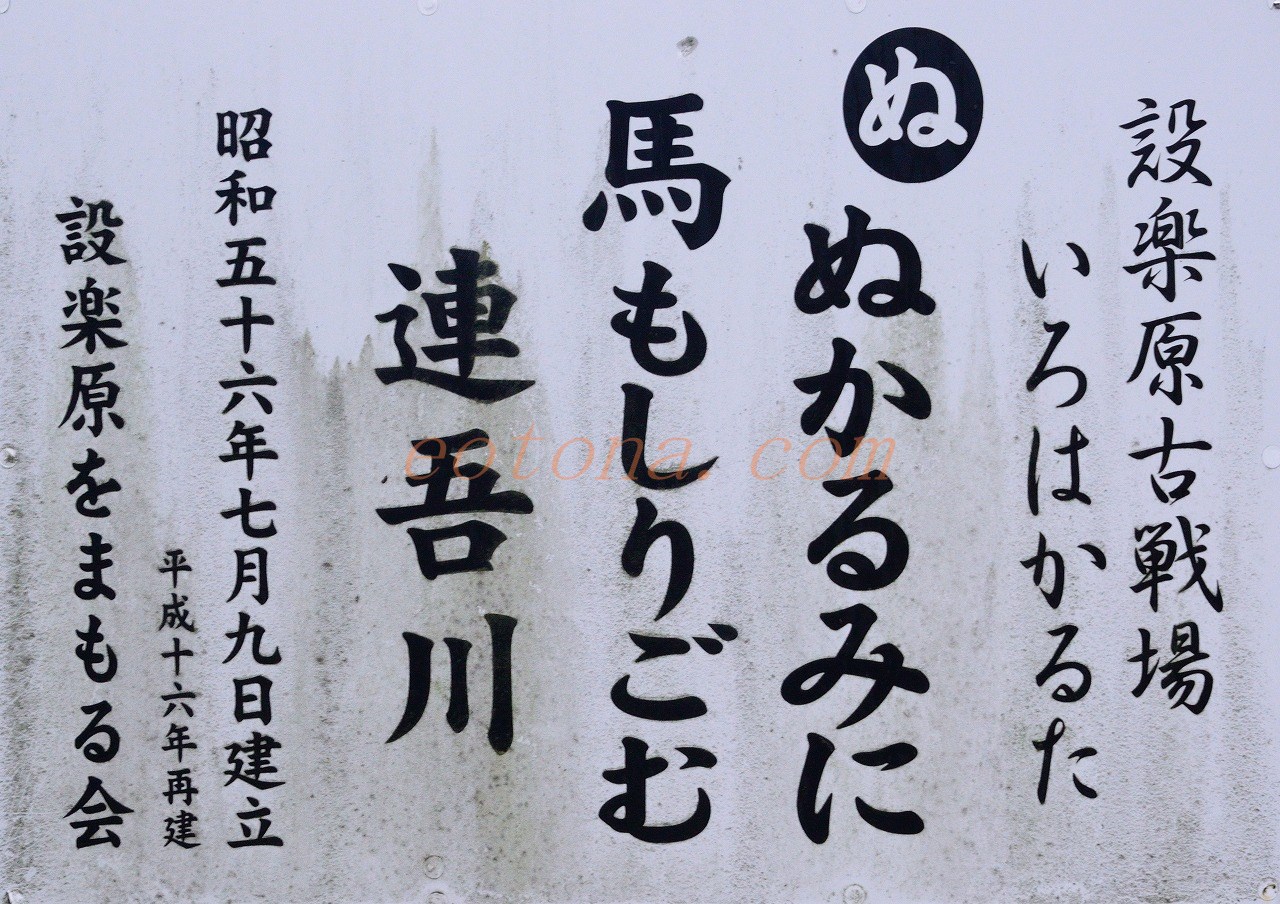 設楽原古戦場
いろはかるた
ぬ
ぬかるみに
馬もしりごむ
連吾川
昭和五十六年七月九日建立
平成十六年再建
設楽原をまもる会
eotona.com